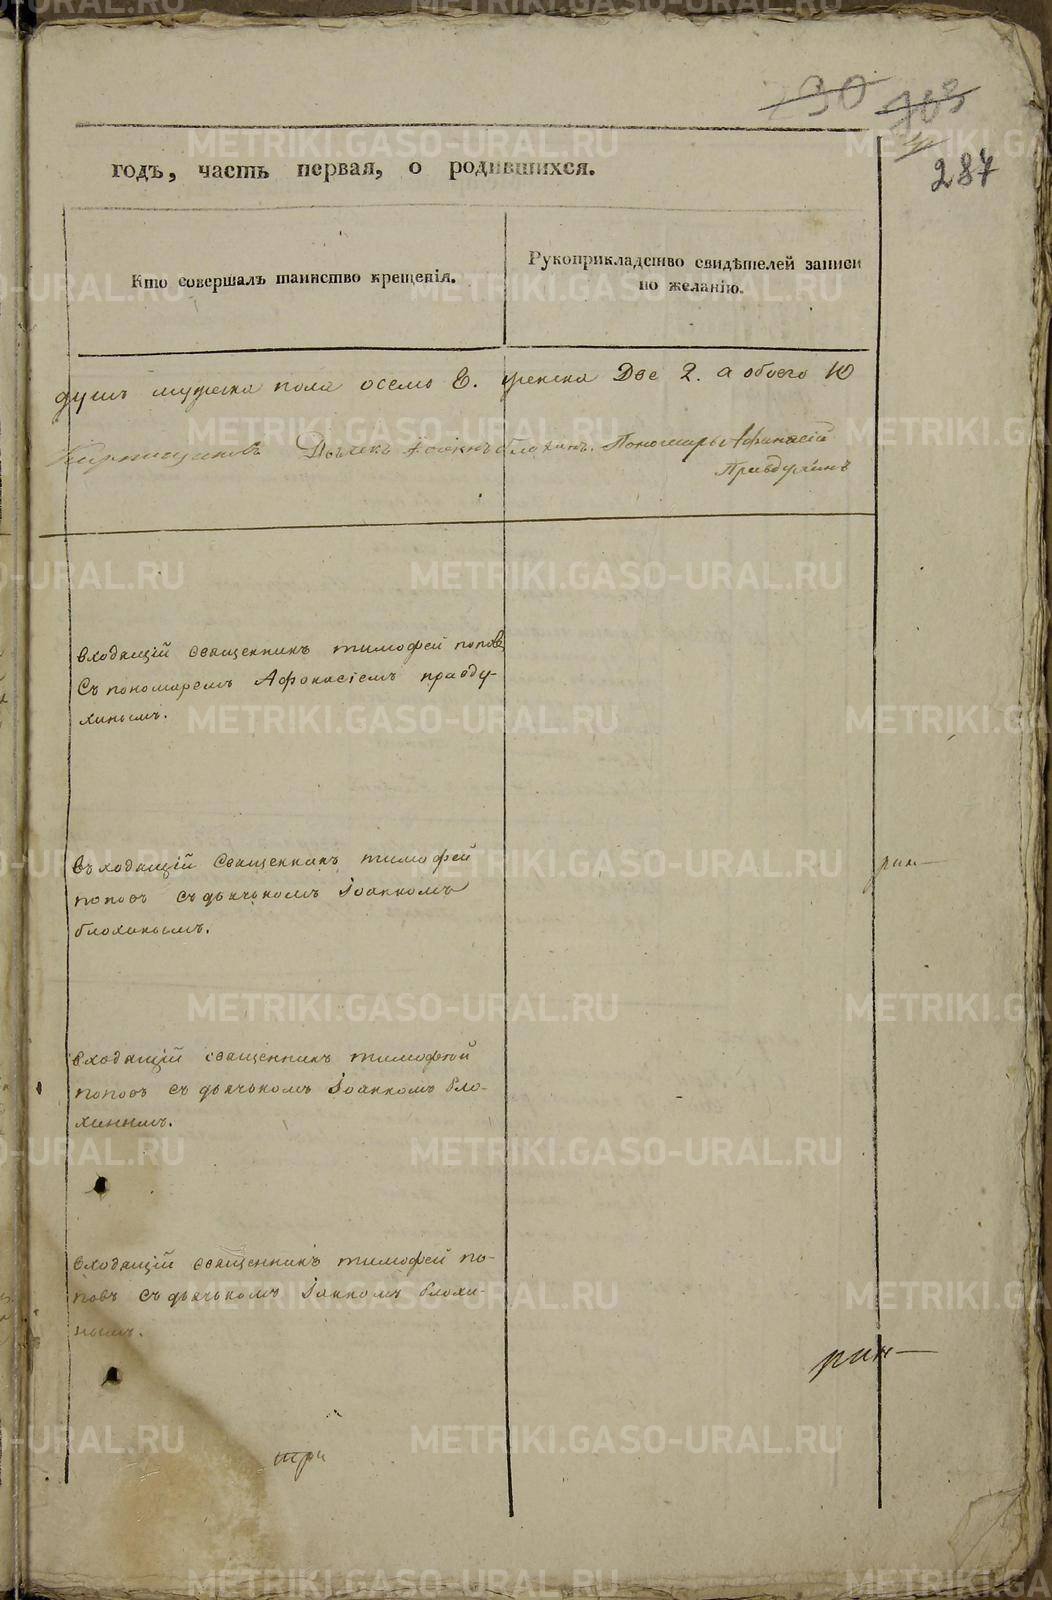 90 903
287
годъ, часть первая, о родившихся.
Кто совершалъ таинство крещенія.
Рукоприкладство свидѣтелей записи
по желанію.
душъ мужеска пола осемь 8. женска Две 2. а обоего 10
Дьячекъ Іоаннъ Блохинъ. Пономарь Афанасій
Правдухинъ
входящій священникъ тимофей поповъ
Съ пономаремъ Афонасіемъ правду-
хинымъ.
въходящій священникъ тимофей
поповъ съ дьячькомъ Іоанномъ
блохинымъ.
входящій священникъ тимофей
поповъ съ дьячькомъ Іоанномъ бло-
хинымъ.
входящій священникъ тимофей по-
повъ съ дьячькомъ Іоанномъ блохи-
нымъ.
три
METRIKI.GASO-URAL.RU